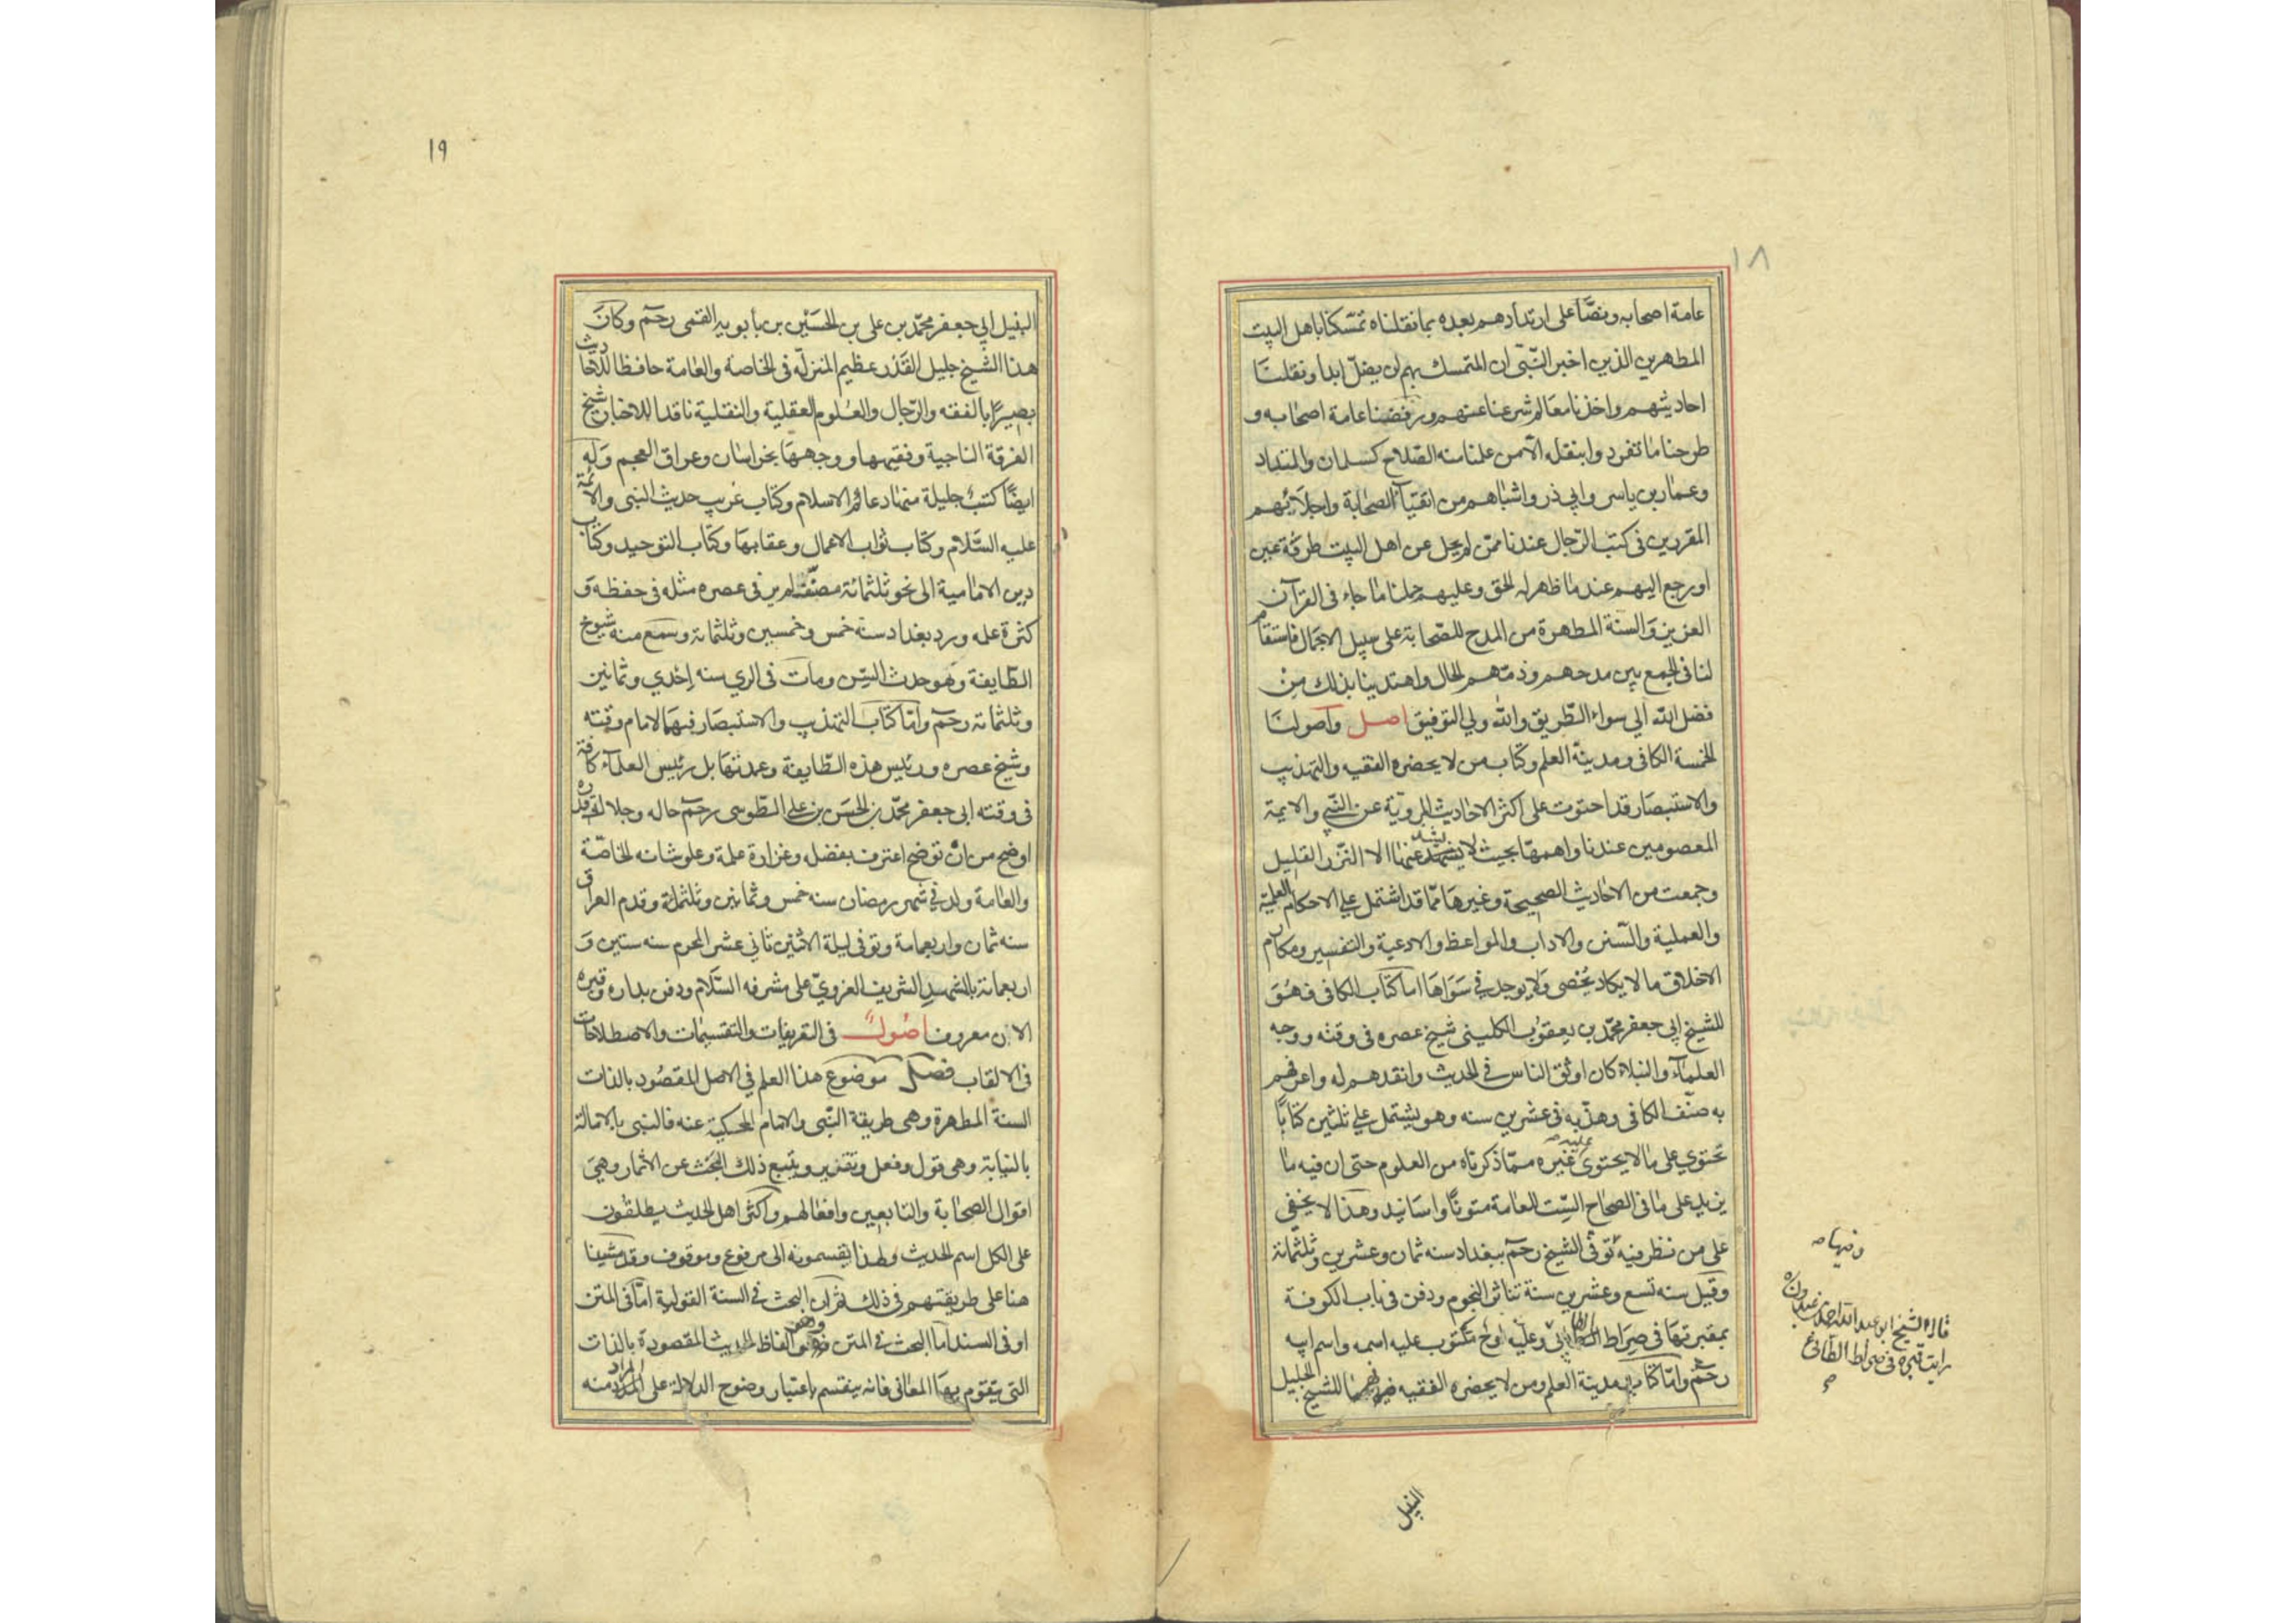 ١٨
عامة اصحابه ونصّا على ارتدادهم بعده بما نقلناه تمسّكنا باهل البيت
المطهرين الذين اخبر النّبى ان المتمسك بهم لن يضلّ ابدا ونقلنا
احاديثهم واخذنا معالم شرعنا عنهم ورفضنا عامة اصحابه و
طرحنا ما تفردوا بنقله الّا من علمنا منه الصّلاح كسلمان والمقداد
وعمار بن ياسر وابي ذر واشباههم من اتقيآء الصحابة واجلائهم
المقررين فى كتب الرّجال عندنا ممّن لم يحل عن اهل البيت طرفة عين
او رجع اليهم عند ما ظهر له الحق وعليهم حملنا ما جاء فى القرآن
العزيز والسنة المطهرة من المدح للصّحابة على سبيل الاجمال فاستقام
لنا فى الجمع بين مدحهم وذمّهم الحال واهتدينا بذلك من
فضل الله الى سواء الطّريق والله ولي التوفيق اصل واصولنا
الخمسة الكافى ومدينة العلم وكتاب من لا يحضره الفقيه والتهذيب
والاستبصار قد احتوت على اكثر الاحاديث المروية عن النّبي والايمة
المعصومين عندنا واهمها بحيث لا يشذ عنها الا النّزر القليل
وجمعت من الاحاديث الصحيحة وغيرها ممّا قد اشتمل علي الاحكام العلمية
والعملية والسّنن والاداب والمواعظ والادعية والتفسير ومكارم
الاخلاق ما لا يكاد يحصى ولا يوجد في سواها اما كتاب الكافى فهو
للشيخ ابي جعفر محمّد بن يعقوب الكلينى شيخ عصره فى وقته ووجه
العلمآء والنبلاء كان اوثق الناس في الحديث وانقدهم له واعرفهم
به صنّف الكافى وهذّبه فى عشرين سنه وهو يشتمل علي ثلثين كتابًا
تحتوي على ما لا يحتوى عليه غيره ممّا ذكرناه من العلوم حتى ان فيه ما
يزيد على ما فى الصحاح السّت للعامة متونًا واسانيد وهذا لا يخفى
على من نظر فيه توفى الشيخ رحمه ببغداد سنه ثمان وعشرين وثلثمائة
وقيل سنه تسع وعشرين سنة تناثر النجوم ودفن فى باب الكوفة
بمقبرتها فى صراط الطائي وعليه لوح مكتوب عليه اسمه واسم ابيه
رحمه وامّا كتاب مدينة العلم ومن لا يحضره الفقيه فهما للشيخ الجليل
وفيها
قال الشيخ ابو عبد الله احمد بن عبدون
رايت قبره فى صراط الطائى
النبيل
١٩
النبيل ابي جعفر محمّد بن على بن الحسين بن بابويه القمى رحمه وكان
هذا الشيخ جليل القدر عظيم المنزلة فى الخاصة والعامة حافظا للاحاديث
بصيرًا بالفقه والرّجال والعلوم العقلية والنقلية ناقدا للاخبار شيخ
الفرقة الناجية وفقيهها ووجهها بخراسان وعراق العجم وله
ايضًا كتب جليلة منها دعائم الاسلام وكتاب غريب حديث النبى والائمة
عليه السّلام وكتاب ثواب الاعمال وعقابها وكتاب التوحيد وكتاب
دين الامامية الى نحو ثلثمائة مصنّف لم ير فى عصره مثله فى حفظه و
كثرة علمه ورد بغداد سنه خمس وخمسين وثلثمائة وسمع منه شيوخ
الطّايفة وهو حدث السّن ومات فى الري سنه إحدي وثمانين
وثلثمائة رحمه وامّا كتاب التهذيب والاستبصار فهما لامام وقته
وشيخ عصره ورئيس هذه الطّايفة وعمدتها بل رئيس العلمآء كافة
فى وقته ابى جعفر محمّد بن الحسن بن علي الطّوسى رحمه حاله وجلالة قدره
اوضح من ان توضح اعترف بفضله وغزارة علمه وعلو شانه الخاصّة
والعامة ولد في شهر رمضان سنه خمس وثمانين وثلثمائة وقدم العراق
سنه ثمان واربعمامة وتوفى ليلة الاثنين ثاني عشر المحرم سنه ستين و
اربعمائة بالمشهد الشريف الغروي على مشرفه السّلام ودفن بداره وقبره
الان معروف اصول فى التعريفات والتقسيمات والاصطلاحات
فى الالقاب فصل موضوع هذا العلم في الاصل المقصود بالذات
السنة المطهرة وهى طريقة النّبى والامام المحكية عنه فالنبى بالاصالة
بالنيابة وهى قول وفعل وتقرير ويتبع ذلك البحث عن الاثار وهي
اقوال الصحابة والتابعين وافعالهم واكثر اهل الحديث يطلقون
على الكل اسم الحديث ولهذا يقسمونه الى مرفوع وموقوف وقد مشينا
هنا على طريقتهم فى ذلك ثمّ ان البحث في السنة القولية امّا فى المتن
او فى السند امّا البحث في المتن وهو الفاظ الحديث المقصودة بالذات
التى يتقوم بها المعانى فانه ينقسم باعتبار وضوح الدلالة على المراد منه